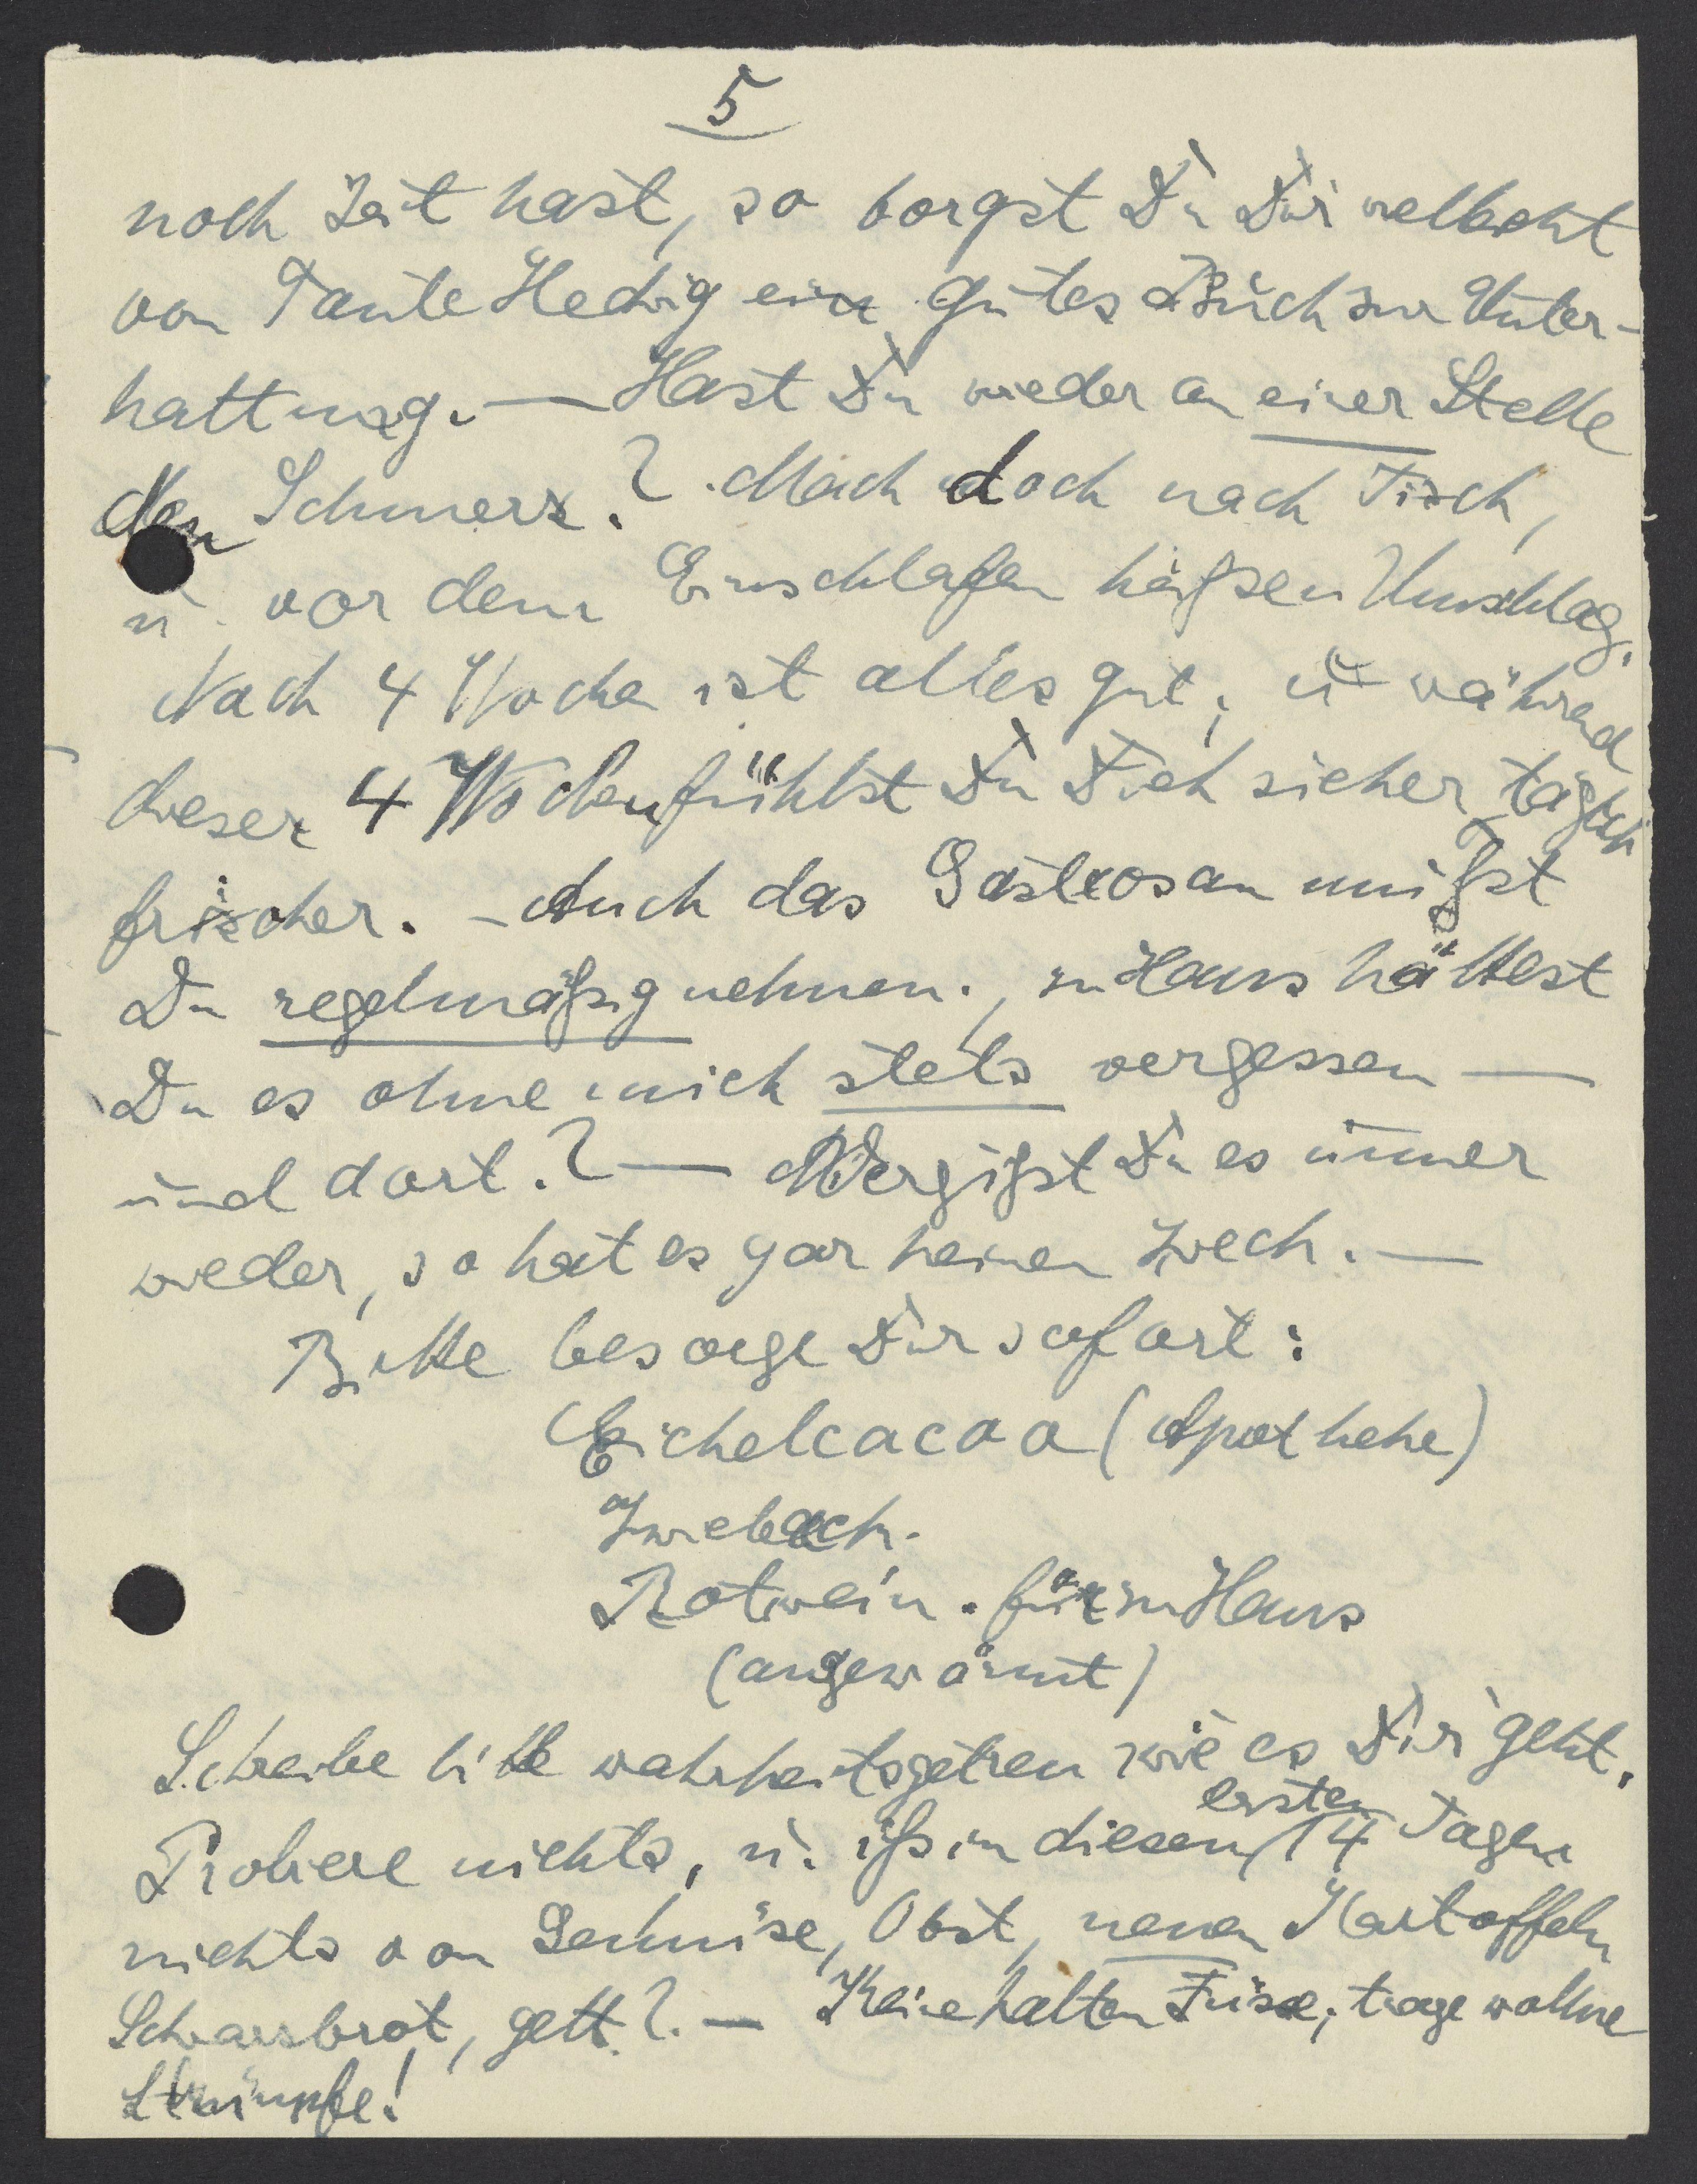 5
noch Zeit hast, so borgst Du Dir vielleicht
von Tante Hedwig ein gutes Buch zur Unter-
haltung. — Hast Du wieder an einer Stelle
den Schmerz.? Mach doch nach Tisch,
u. vor dem Einschlafen heißen Umschlag.
Nach 4 Wochen ist alles gut; u. während
dieser 4 Wochen fühlst Du Dich sicher täglich
frischer. – Auch das Gastrosan mußt
Du regelmäßig nehmen., zu Haus hättest
Du es ohne mich stets vergessen —
und dort.? — Vergißt Du es immer
wieder, so hat es gar keinen Zweck. —
Bitte besorge Dir sofort:
Eichelcacao (Apotheke)
Zwieback.
Rotwein. für zu Haus
(angewärmt)
Schreibe bitte wahrheitsgetreu wie es Dir geht.
Probiere nichts, u. iß in diesen ersten 14 Tagen
nichts von Gemüse, Obst, neuen Kartoffeln
Schwarzbrot, gelt?. — Keine kalten Füsse; trage wollne
Strümpfe!